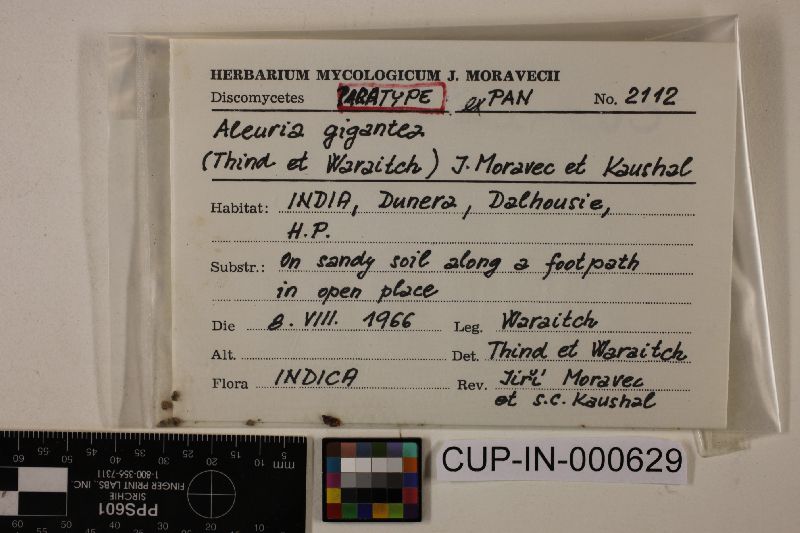 HERBARIUM MYCOLOGICUM J. MORAVECII
Discomycetes PARATYPE ex PAN No. 2112
Aleuria gigantea
(Thind et Waraitch) J. Moravec et Kaushal
Habitat: INDIA, Dunera, Dalhousie,
H.P.
Substr.: On sandy soil along a footpath
in open place
Die 8. VIII. 1966 Leg. Waraitch
Alt. Det. Thind et Waraitch
Flora INDICA Rev. Jiří Moravec
et S.C. Kaushal
CUP-IN-000629
60 50 20 10 5 mm
PPS601
SIRCHIE
FINGER PRINT LABS., INC.
1-800-356-7311
60 50 40 30 20 10